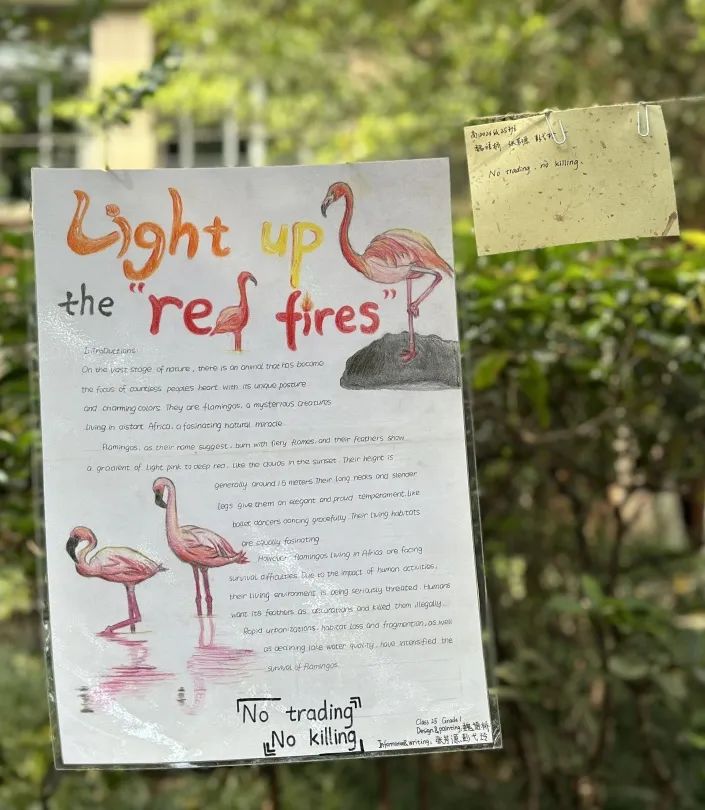 Light up
the "red fires"
Introductions:
On the vast stage of nature, there is an animal that has become
the focus of countless people's heart with its unique posture
and charming colors. They are flamingos, a mysterious creatures
living in distant Africa, a fasinating natural miracle.
Flamingos, as their name suggest, burn with fiery flames, and their feathers show
a gradient of light pink to deep red, like the clouds in the sunset. Their height is
generally around 1.5 meters. Their long necks and slender
legs give them an elegant and proud temperament, like
ballet dancers dancing gracefully. Their living habitats
are equally fasinating.
However, flamingos living in Africa are facing
survival difficulties. Due to the impact of human activities,
their living environment is being seriously threated. Humans
want its feathers as decorations and killed them illegally.
Rapid urbanizations, habitat loss and fragmention, as well
as declining lake water quality, have intensified the
survival of flamingos.
「No trading
No killing」
Class 25 Grade 1
Design&painting:
Information&writing:
No trading, no killing.